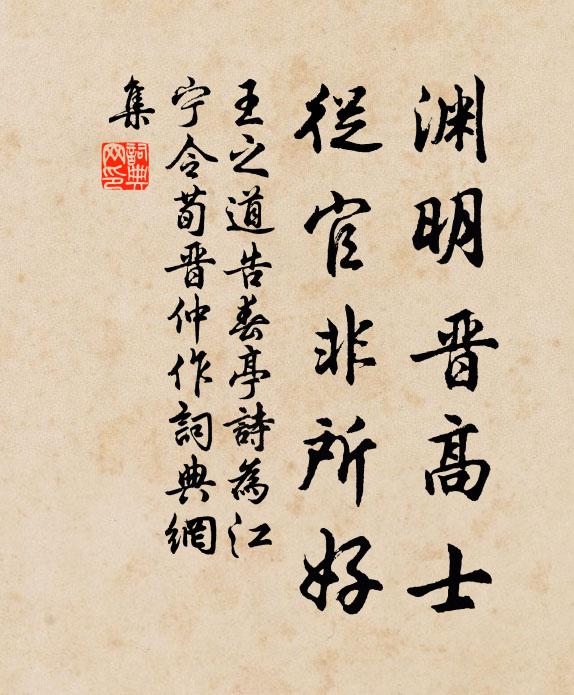 渊明晋高士
從官非所好
王之道告春亭詩為江
宁令荀晋仲作詞典網
集
詞典網印